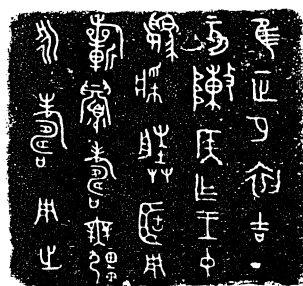 隹正月初吉丁
亥陳侯乍王中
媯媵用
眉壽無疆
永壽用之